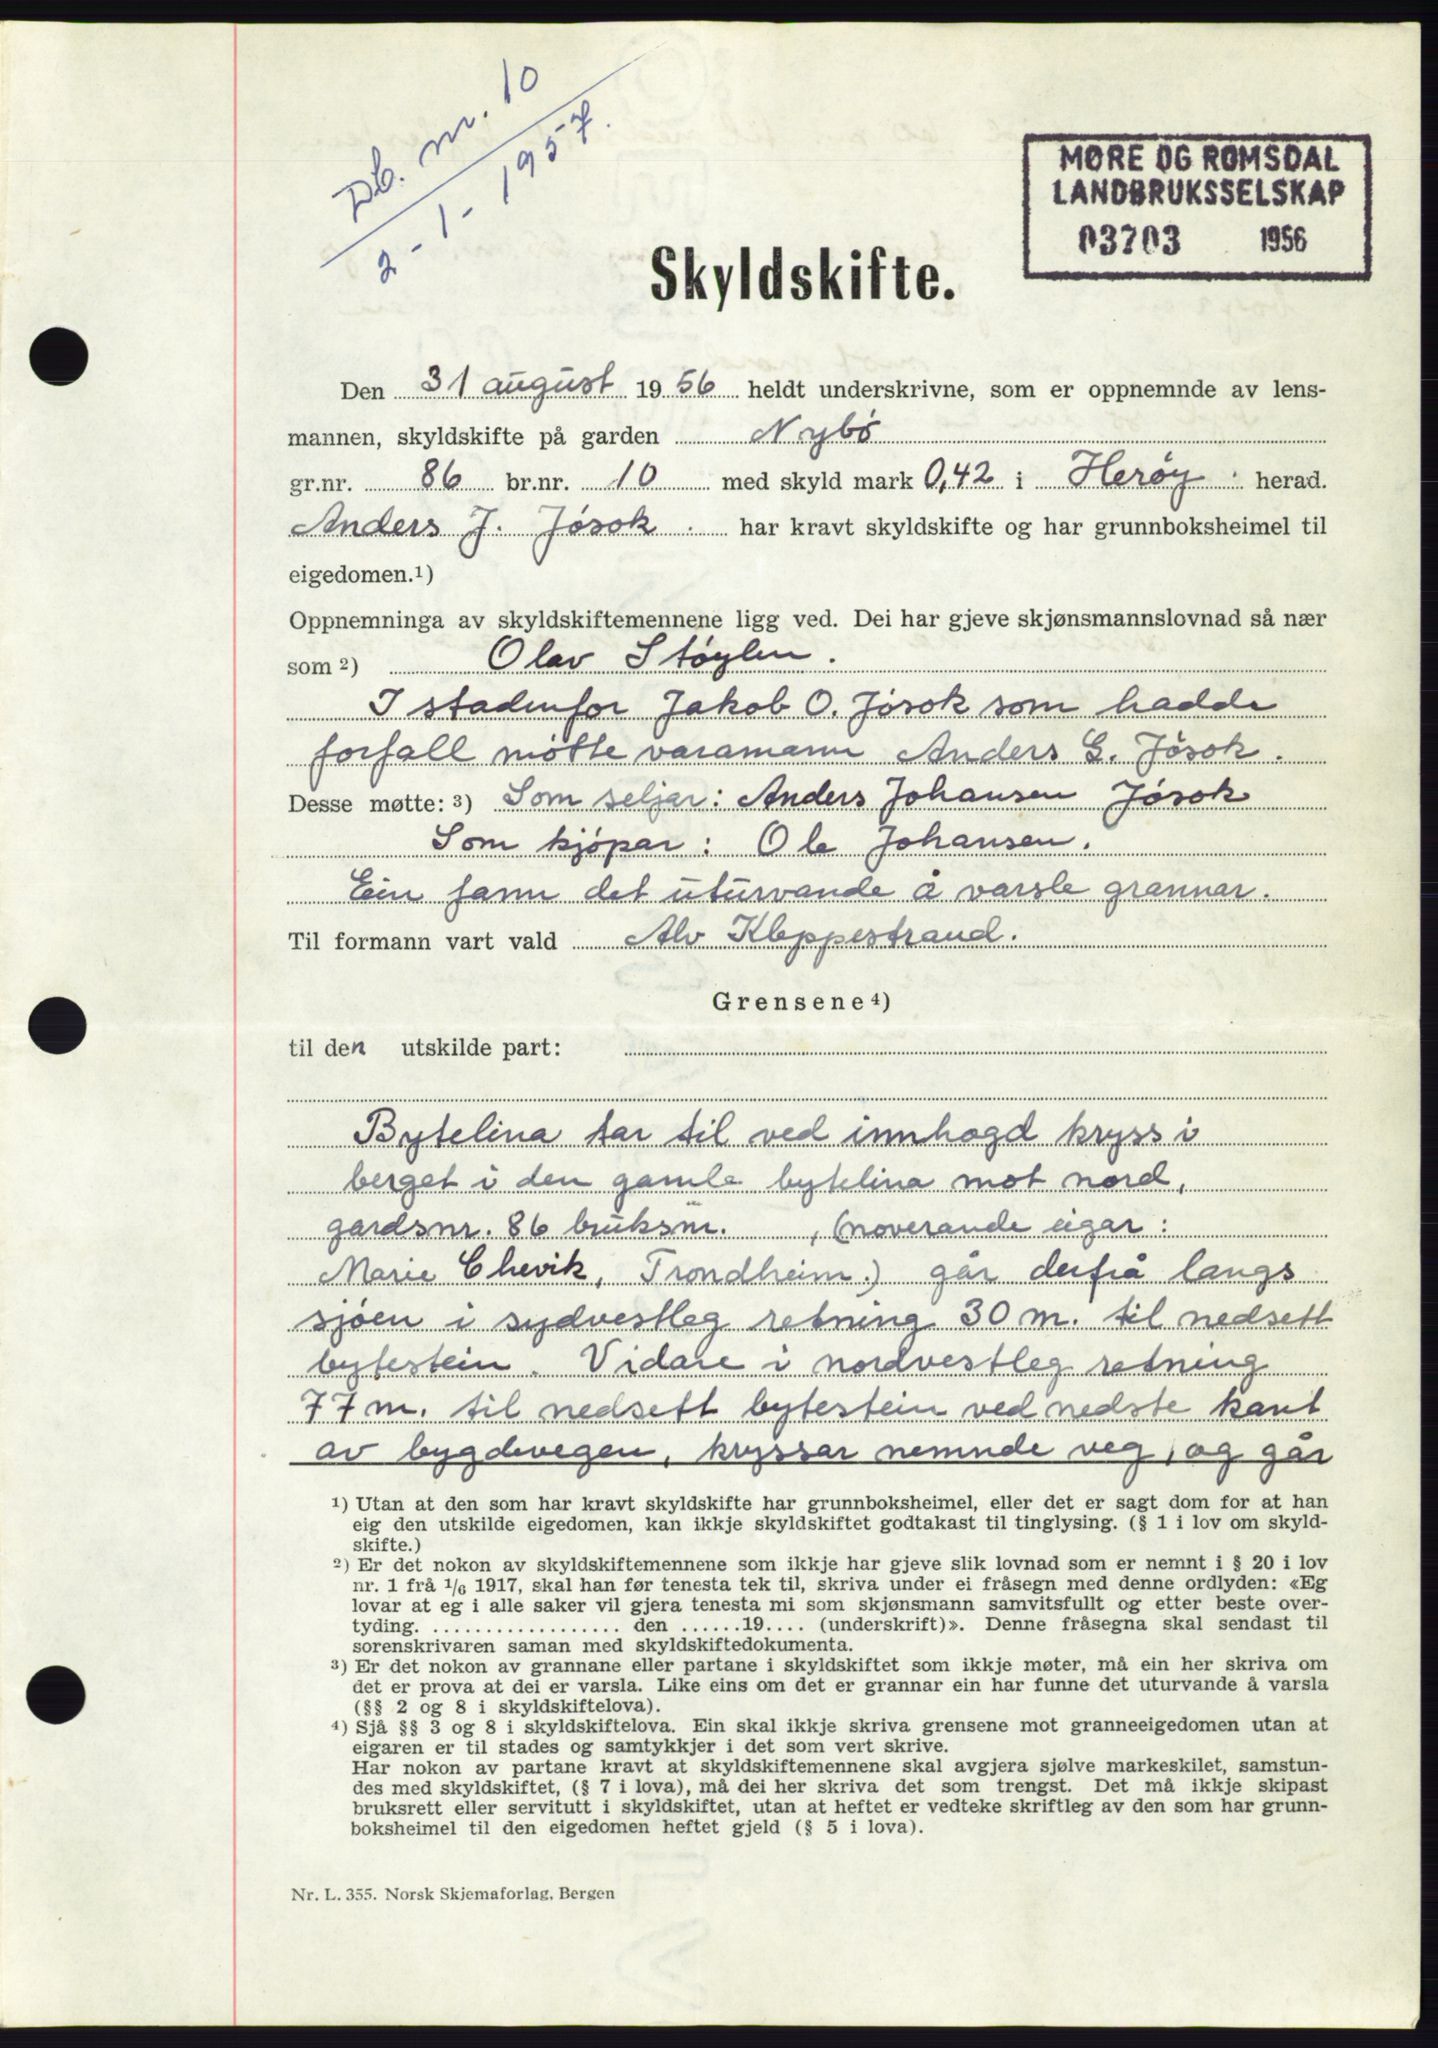 Db. nr. 10
2 - 1 - 1957.
MØRE OG ROMSDAL
LANDBRUKSSELSKAP
03703 1956
Skyldskifte.
Den 31 august 1956 heldt underskrivne, som er oppnemnde av lens-
mannen, skyldskifte på garden Nybø
gr.nr. 86 br.nr. 10 med skyld mark 0,42 i Herøy herad.
Anders J. Jøsok har kravt skyldskifte og har grunnboksheimel til
eigedomen.¹)
Oppnemninga av skyldskiftemennene ligg ved. Dei har gjeve skjønsmannslovnad så nær
som ²) Olav Støylen.
I stadenfor Jakob O. Jøsok som hadde
forfall møtte varamann Anders G. Jøsok.
Desse møtte: ³) Som seljar: Anders Johansen Jøsok
Som kjøpar: Ole Johansen.
Ein fann det uturvande å varsle grannar.
Til formann vart vald Alv Kleppestrand.
Grensene ⁴)
til den utskilde part:
Bytelina tar til ved innhogd kryss i
berget i den gamle bytelina mot nord,
gardsnr. 86 bruksnr. , (noverande eigar:
Marie Chevik, Trondheim.) går derfrå langs
sjøen i sydvestleg retning 30 m. til nedsett
bytestein. Vidare i nordvestleg retning
77 m. til nedsett bytestein ved nedste kant
av bygdevegen, kryssar nemnde veg, og går
¹) Utan at den som har kravt skyldskifte har grunnboksheimel, eller det er sagt dom for at han
eig den utskilde eigedomen, kan ikkje skyldskiftet godtakast til tinglysing. (§ 1 i lov om skyld-
skifte.)
²) Er det nokon av skyldskiftemennene som ikkje har gjeve slik lovnad som er nemnt i § 20 i lov
nr. 1 frå 1/6 1917, skal han før tenesta tek til, skriva under ei fråsegn med denne ordlyden: «Eg
lovar at eg i alle saker vil gjera tenesta mi som skjønsmann samvitsfullt og etter beste over-
tyding. .................. den ......19.... (underskrift)». Denne fråsegna skal sendast til
sorenskrivaren saman med skyldskiftedokumenta.
³) Er det nokon av grannane eller partane i skyldskiftet som ikkje møter, må ein her skriva om
det er prova at dei er varsla. Like eins om det er grannar ein har funne det uturvande å varsla
(§§ 2 og 8 i skyldskiftelova).
⁴) Sjå §§ 3 og 8 i skyldskiftelova. Ein skal ikkje skriva grensene mot granneeigedomen utan at
eigaren er til stades og samtykkjer i det som vert skrive.
Har nokon av partane kravt at skyldskiftemennene skal avgjera sjølve markeskilet, samstun-
des med skyldskiftet, (§ 7 i lova), må dei her skriva det som trengst. Det må ikkje skipast
bruksrett eller servitutt i skyldskiftet, utan at heftet er vedteke skriftleg av den som har grunn-
boksheimel til den eigedomen heftet gjeld (§ 5 i lova).
Nr. L. 355. Norsk Skjemaforlag, Bergen